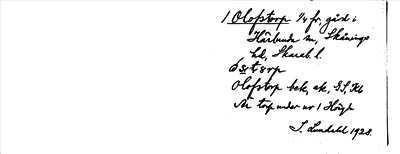 1 Olofstorp 1/4 fr, gård i
Härlunda sn, Skånings
hd, Skarab. l.
Olofstorp bek, ek, GS, Kb
Är torp under nr 1 Höge
I. Lundahl 1928.